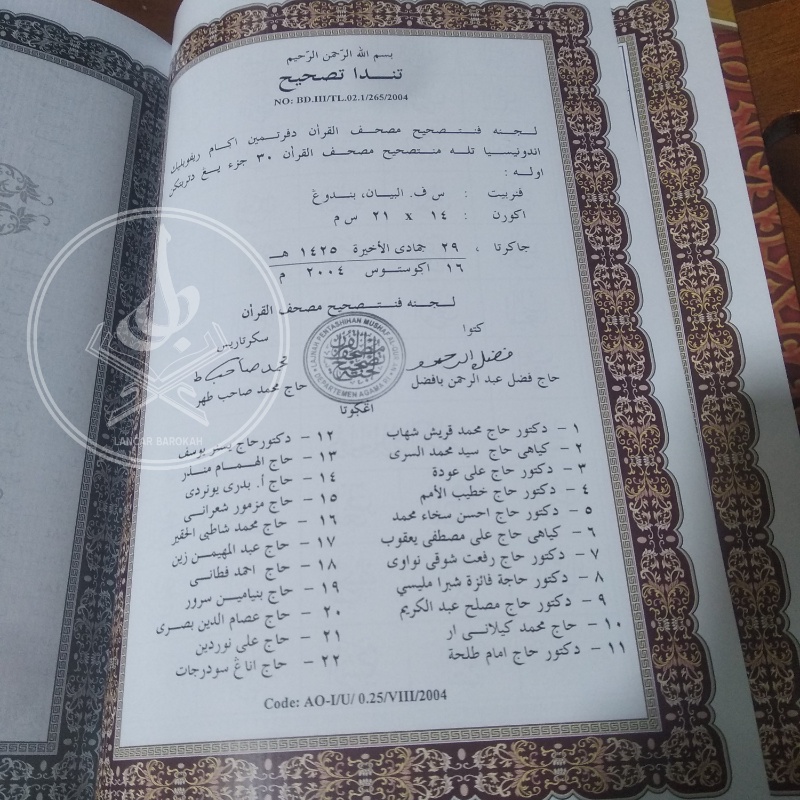 بسم الله الرّحمن الرّحيم
تندا تصحيح
NO: BD.III/TL.02.1/265/2004
لجنه فنتصحيح مصحف القرأن دفرتمين اڬام ريفوبليك
اندونيسيا تله منتصحيح مصحف القرأن ٣٠ جزء يڠ دتربتكن
اوله :
فنربيت : س ف. البيان، بندوڠ
اكورن : ١٤ x ٢١ س م
جاكرتا ، ٢٩ جمادى الأخيرة ١٤٢٥ هـ
١٦ اڬوستوس ٢٠٠٤ م
لجنه فنتصحيح مصحف القرأن
كتوا
سكرتاريس
LAJNAH PENTASHIHAN MUSHAF
DEPARTEMEN AGAMA
حاج فضل عبد الرحمن بافضل
حاج محمد صاحب طهر
اڠڬوتا
١ – دكتور حاج محمد قريش شهاب
٢ – كياهى حاج سيد محمد السرى
٣ – دكتور حاج على عودة
٤ – دكتور حاج خطيب الأمم
٥ – دكتور حاج احسن سخاء محمد
٦ – كياهى حاج على مصطفى يعقوب
٧ – دكتور حاج رفعت شوقى نواوى
٨ – دكتور حاجة فائزة شبرا مليسي
٩ – دكتور حاج مصلح عبد الكريم
١٠ – حاج محمد كيلانى ار
١١ – دكتور حاج امام طلحة
١٢ – دكتور حاج يسر يوسف
١٣ – حاج الهمام منذر
١٤ – حاج أ. بدرى يونردى
١٥ – حاج مزمور شعرانى
١٦ – حاج محمد شاطبى الحقير
١٧ – حاج عبد المهيمن زين
١٨ – حاج احمد فطانى
١٩ – حاج بنيامين سرور
٢٠ – حاج عصام الدين بصرى
٢١ – حاج على نوردين
٢٢ – حاج اناڠ سودرجات
Code: AO-I/U/ 0.25/VIII/2004
LANCAR BAROKAH